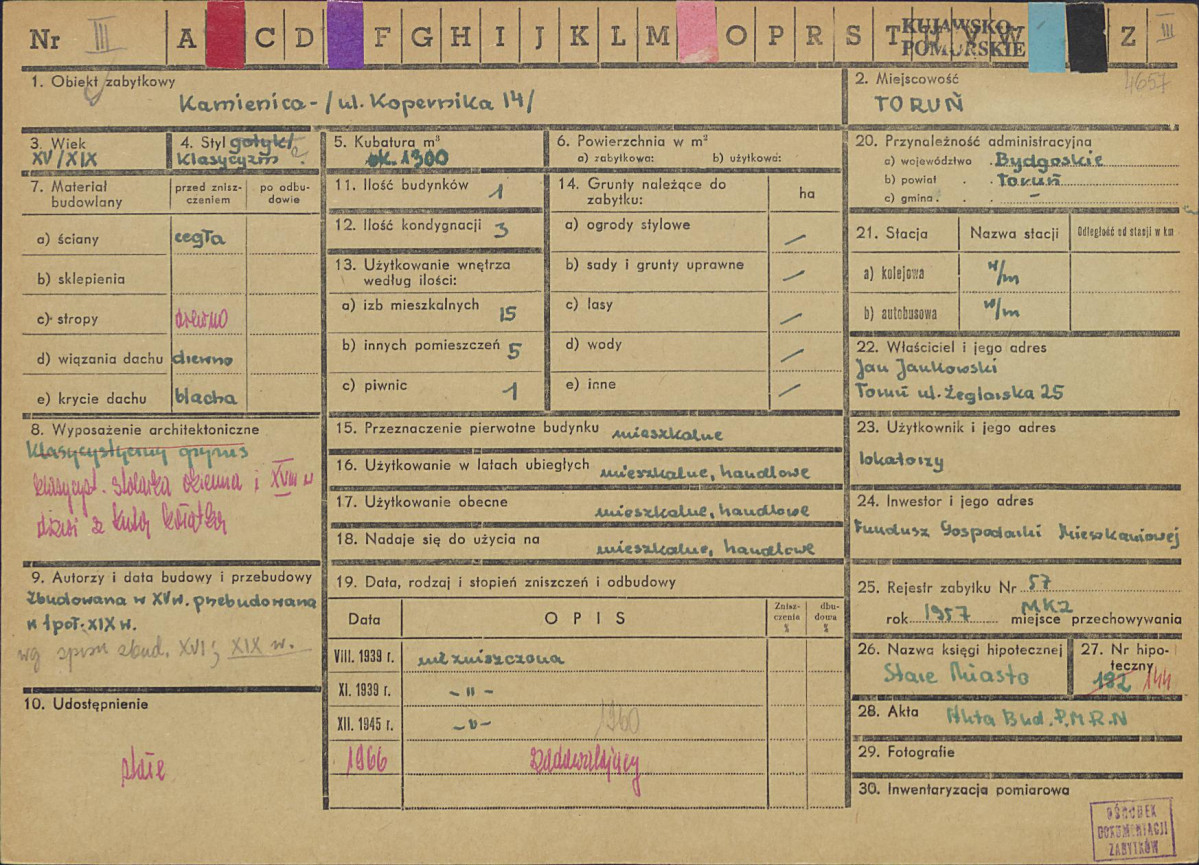 Nr III A C D F G H I J K L M O P R S T U W Z III
KUJAWSKO-
POMORSKIE
1. Obiekt zabytkowy
Kamienica - /ul. Kopernika 14/
2. Miejscowość
4657
TORUŃ
3. Wiek
XV/XIX
4. Styl gotyk/
klasycyzm
5. Kubatura m³
ok. 1300
6. Powierzchnia w m²
a) zabytkowa: b) użytkowa:
7. Materiał budowlany
przed znisz-
czeniem
po odbu-
dowie
a) ściany cegła
b) sklepienia
c) stropy drewno
d) wiązania dachu drewno
e) krycie dachu blacha
8. Wyposażenie architektoniczne
klasycystyczny gzyms
klasycyst. stolarka okienna i XVIII w
drzwi z kutą kołatką
9. Autorzy i data budowy i przebudowy
Zbudowana w XV w. przebudowana
w 1 poł. XIX w.
wg spisu zbud. XVI; XIX w.
10. Udostępnienie
stałe
11. Ilość budynków 1
12. Ilość kondygnacji 3
13. Użytkowanie wnętrza
według ilości:
a) izb mieszkalnych 15
b) innych pomieszczeń 5
c) piwnic 1
14. Grunty należące do
zabytku:
ha
a) ogrody stylowe —
b) sady i grunty uprawne —
c) lasy —
d) wody —
e) inne —
15. Przeznaczenie pierwotne budynku mieszkalne
16. Użytkowanie w latach ubiegłych mieszkalne, handlowe
17. Użytkowanie obecne mieszkalne, handlowe
18. Nadaje się do użycia na mieszkalne, handlowe
19. Data, rodzaj i stopień zniszczeń i odbudowy
Data OPIS
Znisz-
czenia
%
dbu-
dowa
%
VIII. 1939 r. niezniszczona
XI. 1939 r. - " -
XII. 1945 r. - " - 1960
1966 zadawalający
20. Przynależność administracyjna
a) województwo Bydgoskie
b) powiat Toruń
c) gmina —
21. Stacja Nazwa stacji Odległość od stacji w km
a) kolejowa w/m
b) autobusowa w/m
22. Właściciel i jego adres
Jan Jankowski
Toruń ul. Żeglarska 25
23. Użytkownik i jego adres
lokatorzy
24. Inwestor i jego adres
Fundusz Gospodarki Mieszkaniowej
25. Rejestr zabytku Nr 57
rok 1957 MKZ miejsce przechowywania
26. Nazwa księgi hipotecznej
Stare Miasto
27. Nr hipo-
teczny
182 144
28. Akta Akta Bud. P.M.R.N
29. Fotografie
30. Inwentaryzacja pomiarowa
OŚRODEK
DOKUMENTACJI
ZABYTKÓW